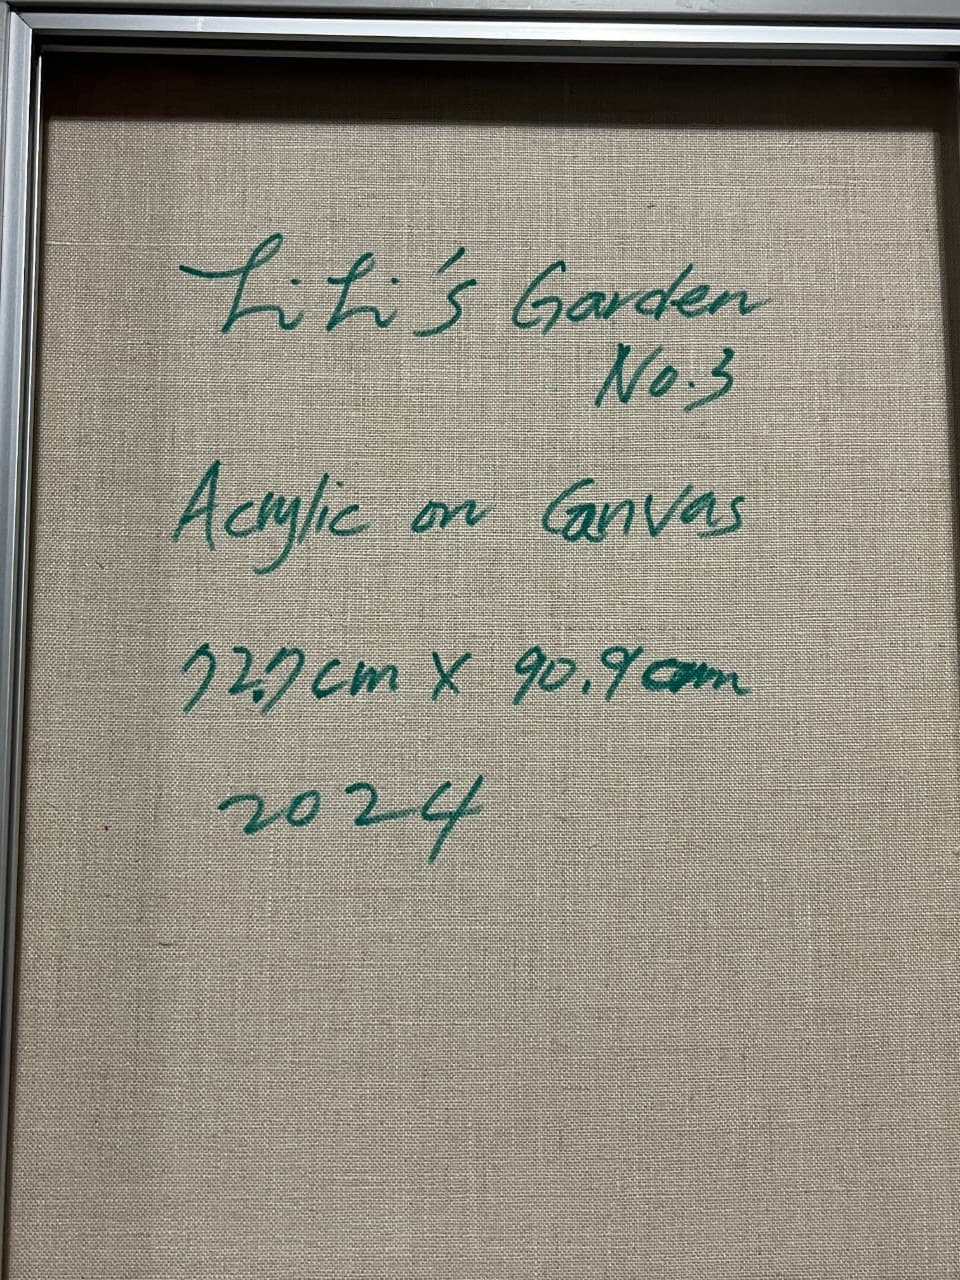 LiLi's Garden
No.3
Acrylic on Canvas
72.7cm X 90.9cm
2024